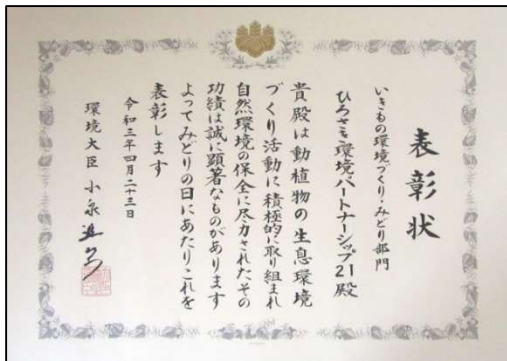 表彰状
いきもの環境づくり・みどり部門
ひろさき環境パートナーシップ21殿
貴殿は動植物の生息環境
づくり活動に積極的に取り組まれ
自然環境の保全に尽力されたその
功績は誠に顕著なものがあります
よってみどりの日にあたりこれを
表彰します
令和三年四月二十三日
環境大臣 小泉進次郎